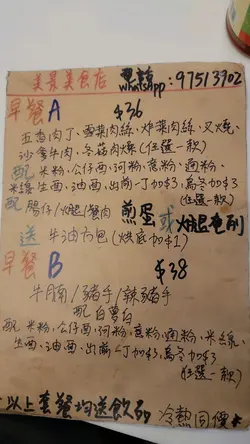 美景美食店 whatsapp:97513902
早餐A $36
五香肉丁、雪菜肉絲、炸菜肉絲、叉燒、
沙爹牛肉、冬菇肉燥(任選一款)
配米粉、公仔面、河粉、意粉、通粉、
米線、生面、油面、出前一丁加$3、烏冬加$3
(任選一款)
配腸仔/火腿/餐肉 煎蛋或火腿奄列
送牛油方包(烘底加$1)
早餐B $38
牛腩/豬手/辣豬手
配白蘿白
配米粉、公仔面、河粉、意粉、通粉、米線、
生面、油面、出前一丁加$3、烏冬加$3
(任選一款)
以上套餐均送飲品 冷熱同價